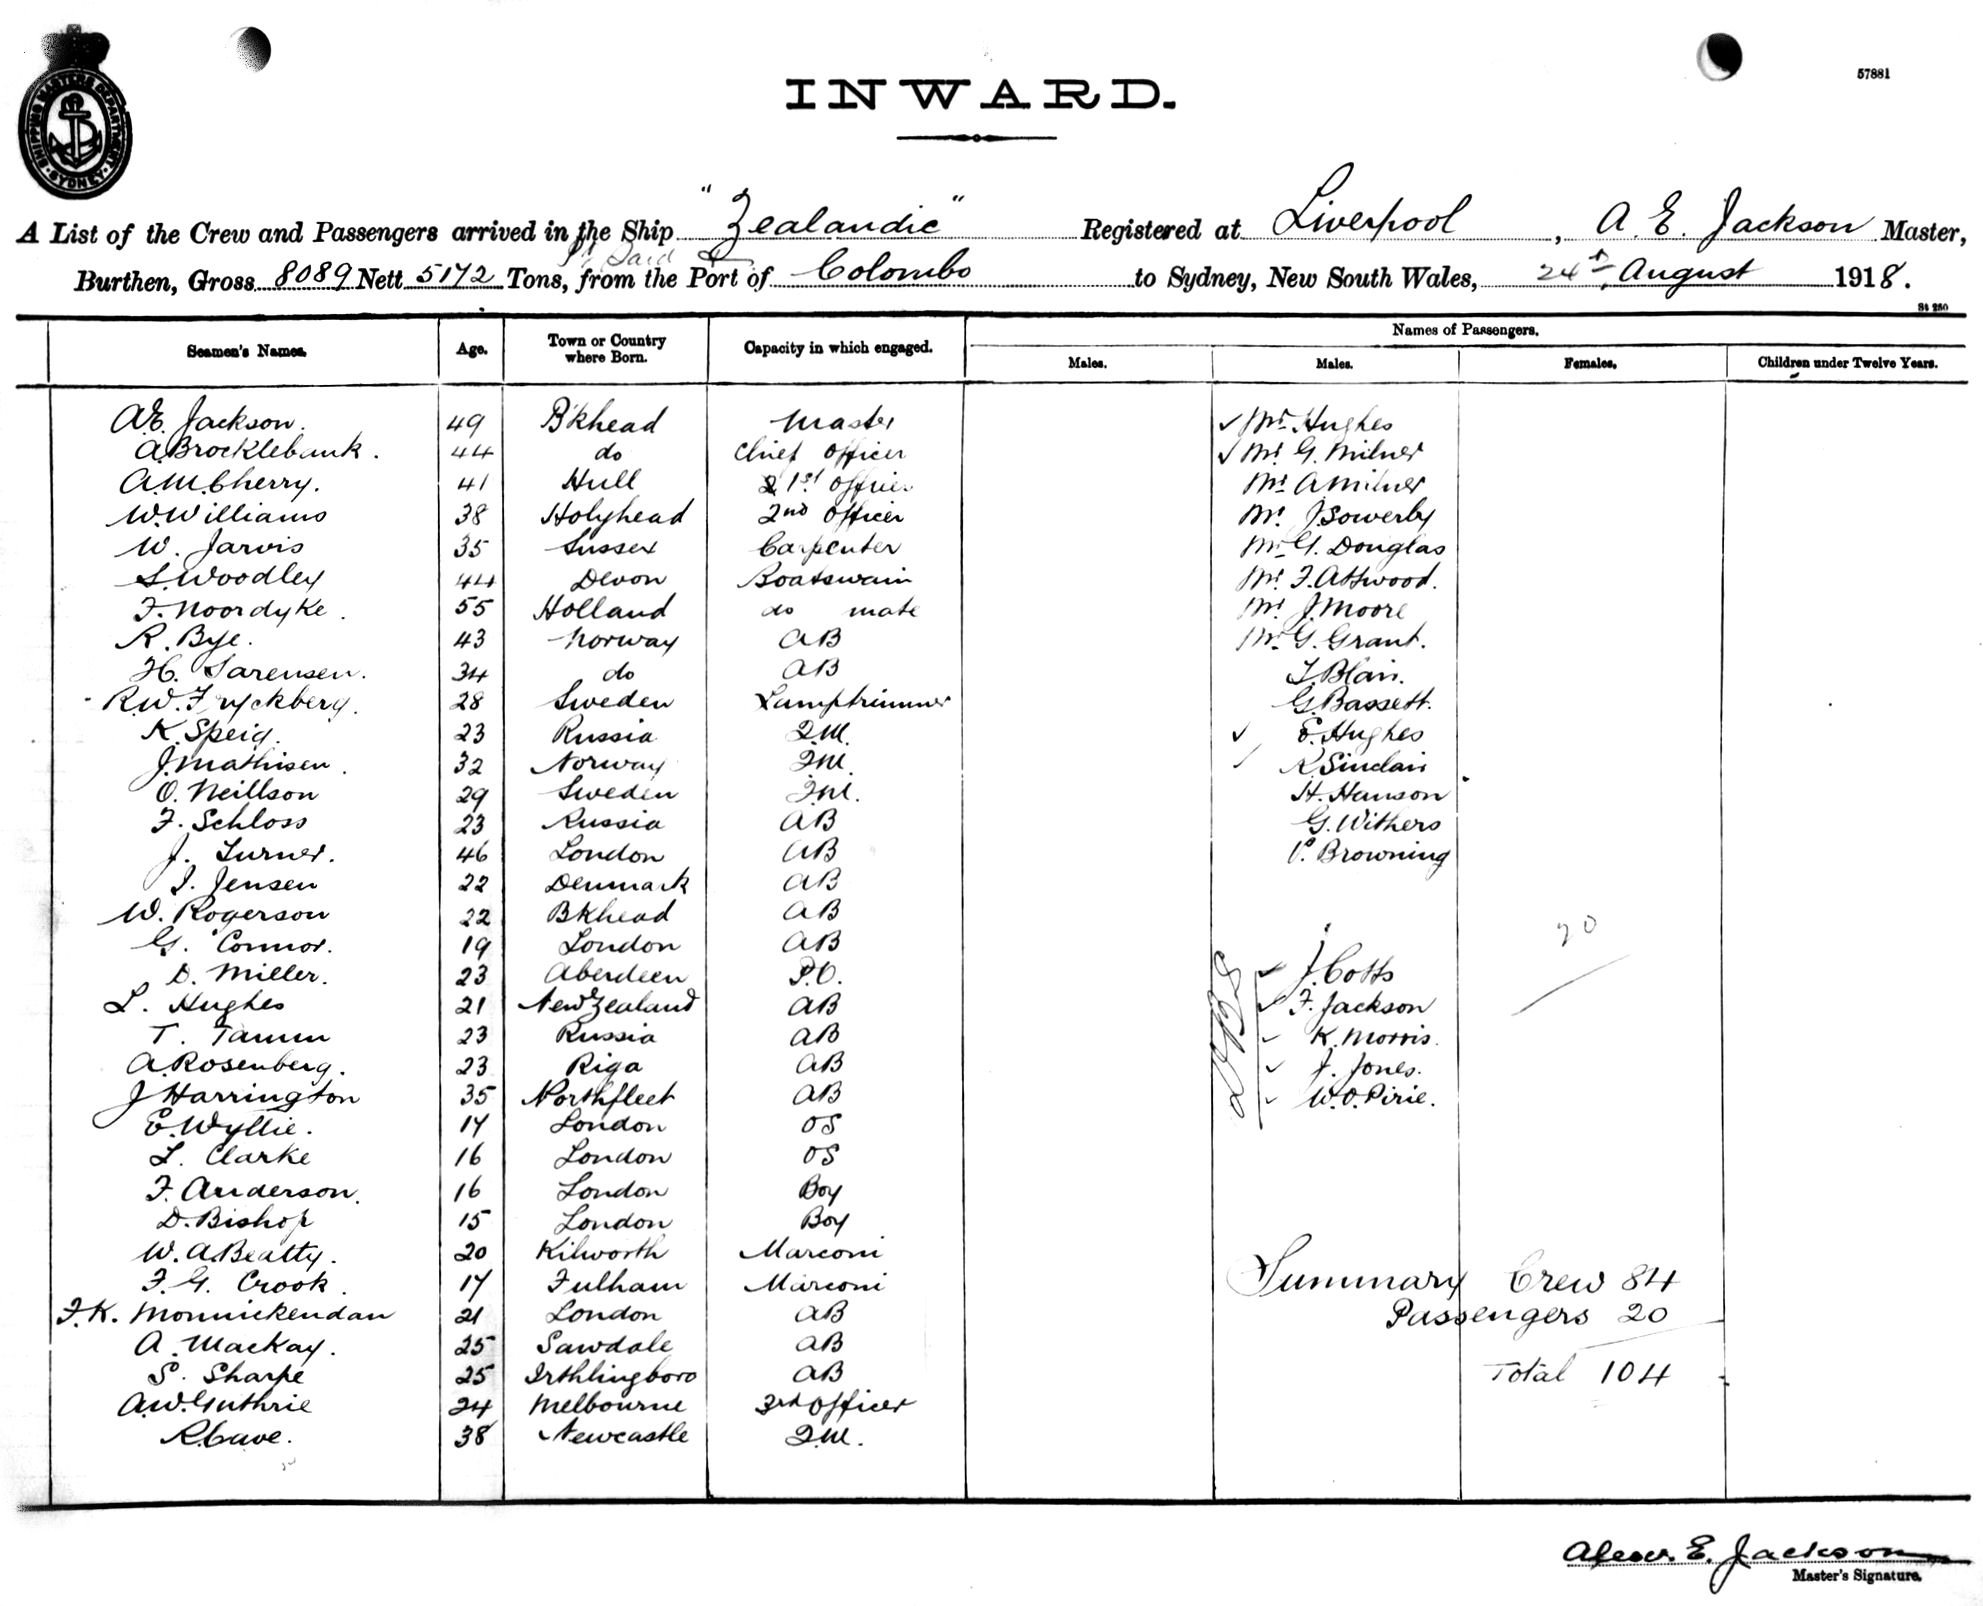 SHIPPING MASTERS DEPARTMENT
SYDNEY
57881
INWARD.
A List of the Crew and Passengers arrived in the Ship "Zealandic" Registered at Liverpool, A. E. Jackson Master,
Pt Said &
Burthen, Gross 8089 Nett 5172 Tons, from the Port of Colombo to Sydney, New South Wales, 24th August 1918.
St 280
Names of Passengers.
Seamen's Names. Age. Town or Country where Born. Capacity in which engaged. Males. Males. Females. Children under Twelve Years.
A.E. Jackson. 49 B'khead Master ✓ Mr. Hughes
A Brocklebank. 44 do Chief Officer ✓ Mr G. Milner
A.M. Cherry. 41 Hull 1st Officer Mr A Milner
W. Williams 38 Holyhead 2nd Officer Mr. J Sowerby
W. Jarvis 35 Sussex Carpenter Mr G. Douglas
S. Woodley 44 Devon Boatswain Mr F. Attwood.
F. Noordyke. 55 Holland do mate Mr J. Moore
R. Bye. 43 Norway AB Mr G. Grant.
H. Sarensen. 34 do AB T. Blair.
R.W. Fryckberg. 28 Sweden Lamptrimmer G. Bassett.
K. Speig. 23 Russia Q.M. ✓ E. Hughes
J. Mathisen. 32 Norway Q.M. ✓ R Sinclair
O. Neillson 29 Sweden Q.M. H. Hanson
F. Schloss 23 Russia AB G. Withers
J. Turner. 46 London AB P. Browning
I. Jensen 22 Denmark AB
W. Rogerson 22 Bkhead AB
G. Connor. 19 London AB 20
D. Miller. 23 Aberdeen P.O. ✓ J. Cotts
L. Hughes 21 New Zealand AB ✓ F. Jackson
T. Tamm 23 Russia AB ✓ K. Morris.
A. Rosenberg. 23 Riga AB ✓ J. Jones.
J Harrington 35 Northfleet AB ✓ W.O. Pirie.
DBS
E. Wyllie. 17 London OS
L. Clarke 16 London OS
F. Anderson. 16 London Boy
D. Bishop 15 London Boy
W. A. Beatty. 20 Kilworth Marconi
F. G. Crook. 17 Fulham Marconi Summary Crew 84
F. K. Monnickendan 21 London AB Passengers 20
A. Mackay. 25 Sawdale AB
S. Sharpe 25 Irthlingboro AB Total 104
A.W. Guthrie 24 Melbourne 3rd Officer
R. Cave. 38 Newcastle Q.M.
Alexr. E. Jackson
Master's Signature.